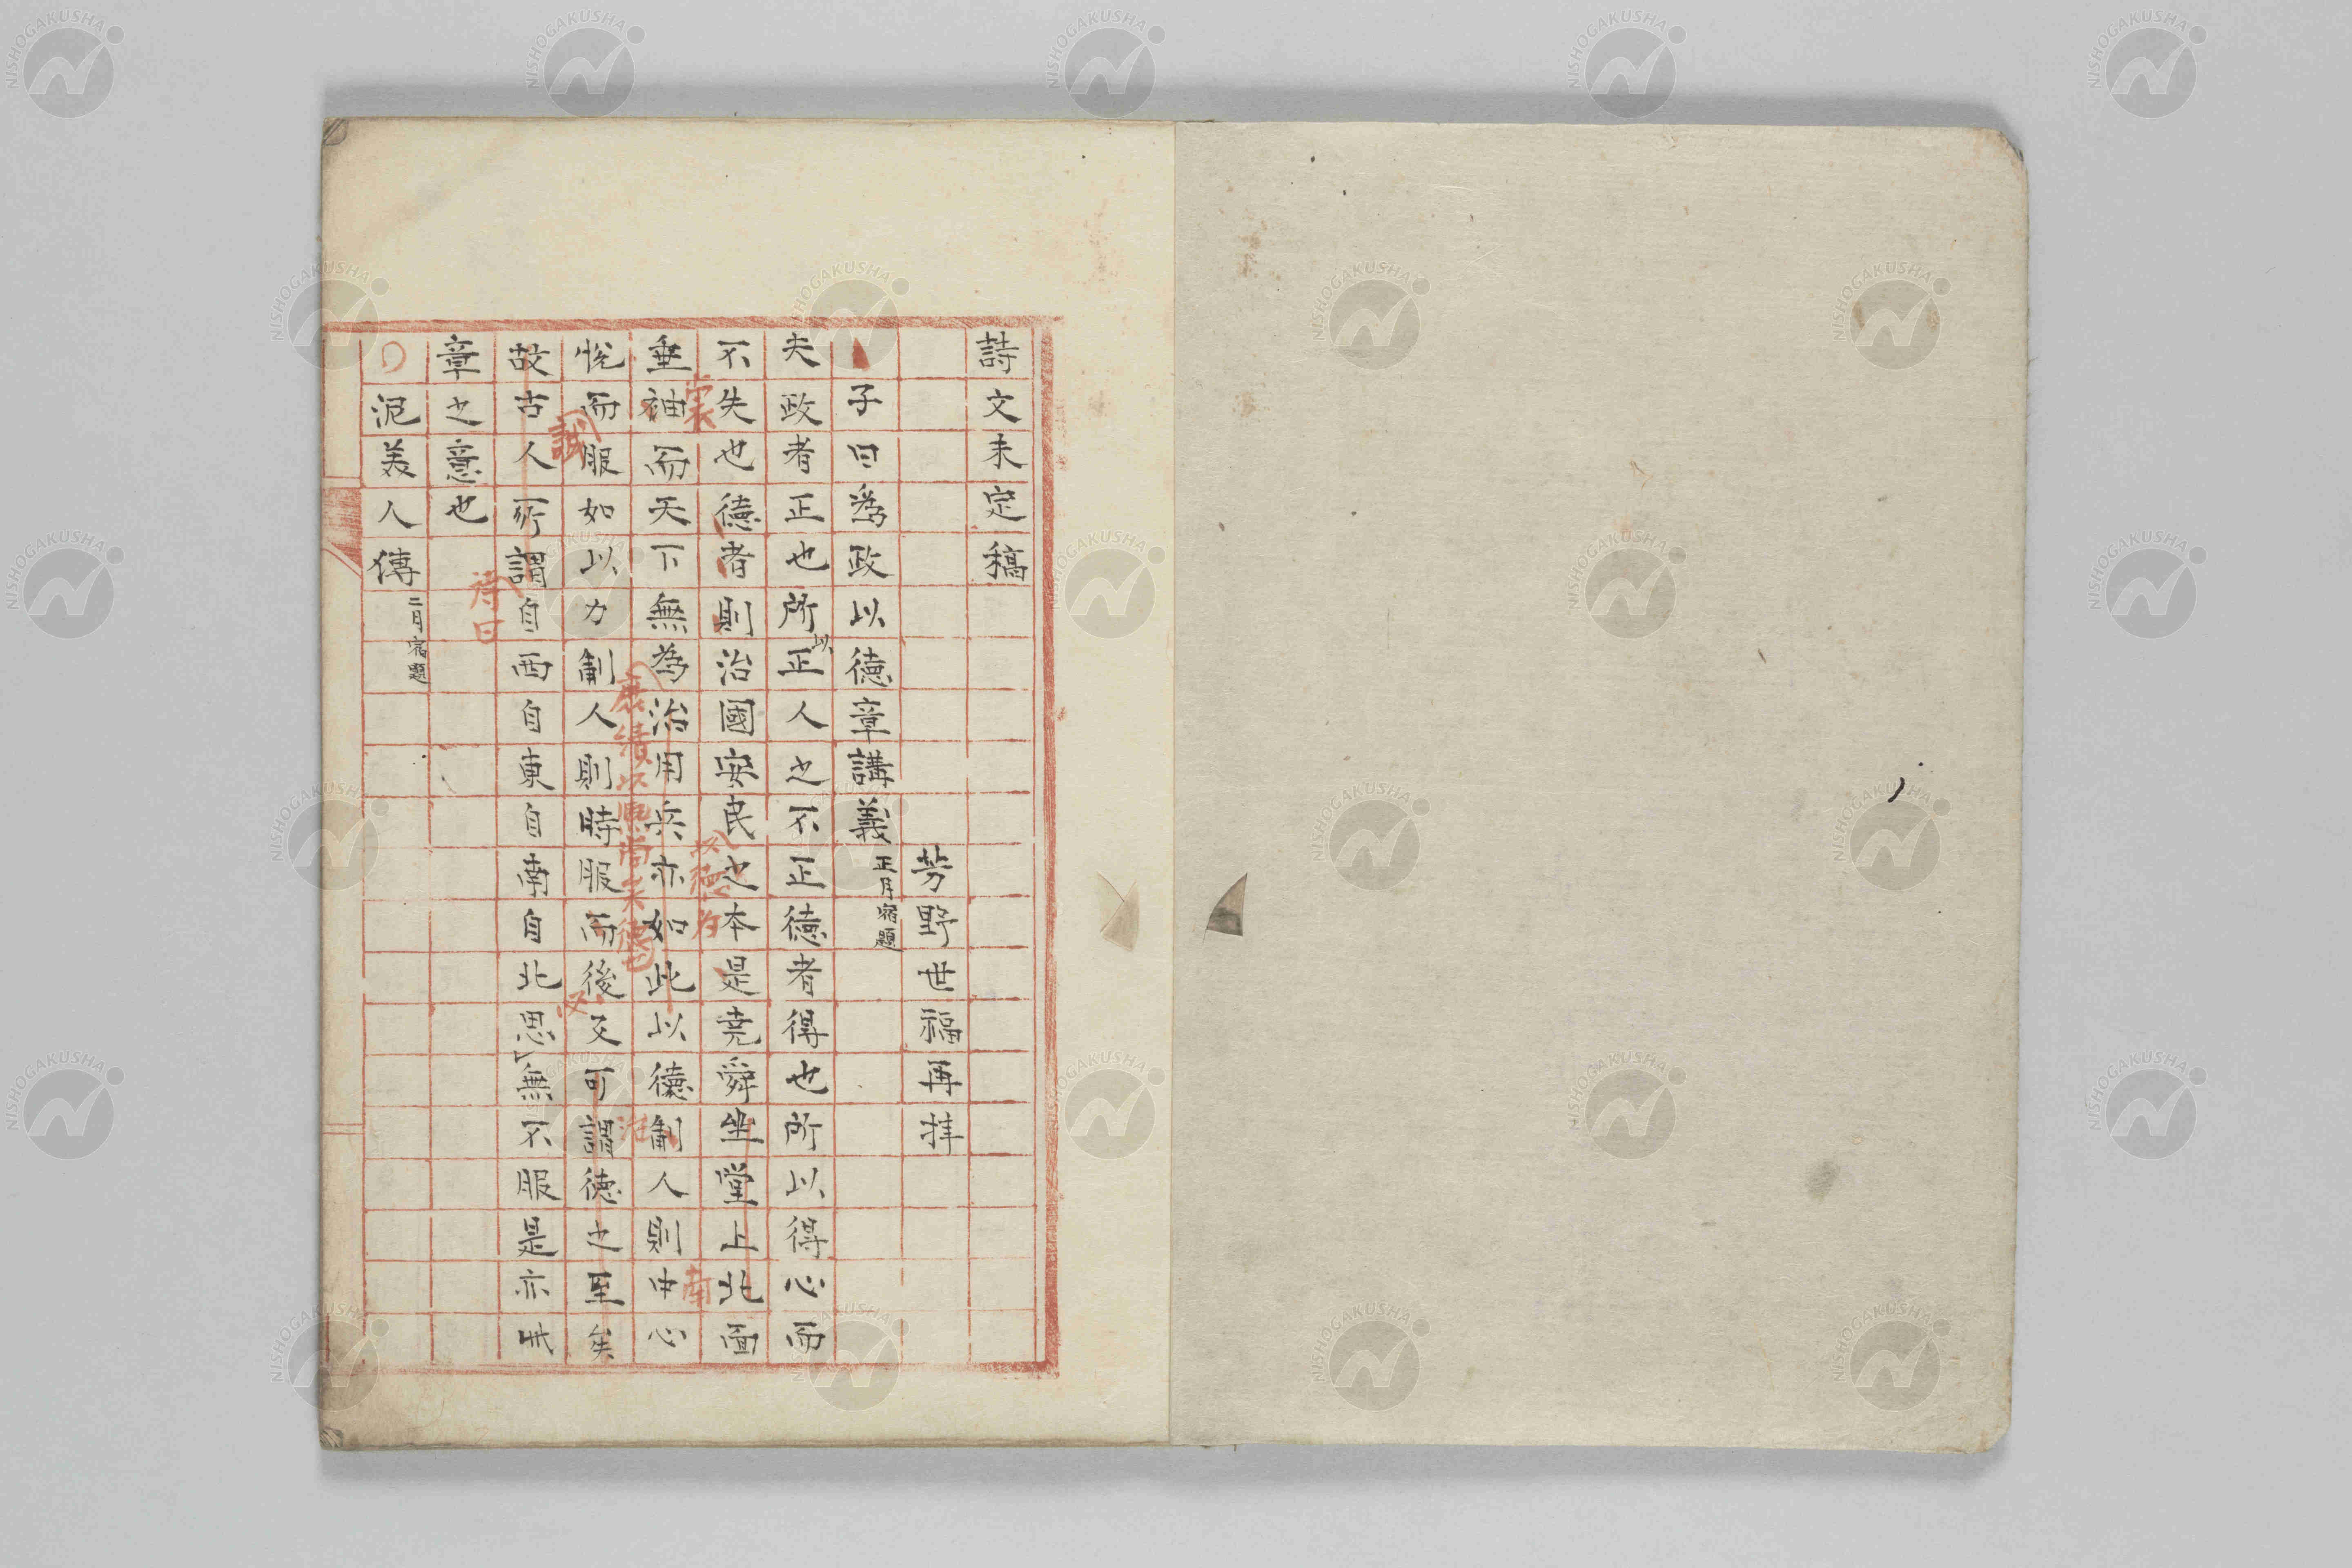 詩文未定稿
芳野世福再拝
子曰為政以徳章講義 正月宿題
夫政者正也所以正人之不正徳者得也所以得心而
不失也徳者則治国安民之本是尭舜坐堂上北面
裳
以徳為
南
垂袖而天下無為治用兵亦如此以徳制人則中心
庶績以興尚末徳也
悦而服如以力制人則時服而後又可謂徳之至矣
誠
故古人所謂自西自東自南自北思無不服是亦此
詩曰
章之意也
泥美人傳 二月宿題
NISHOGAKUSHA